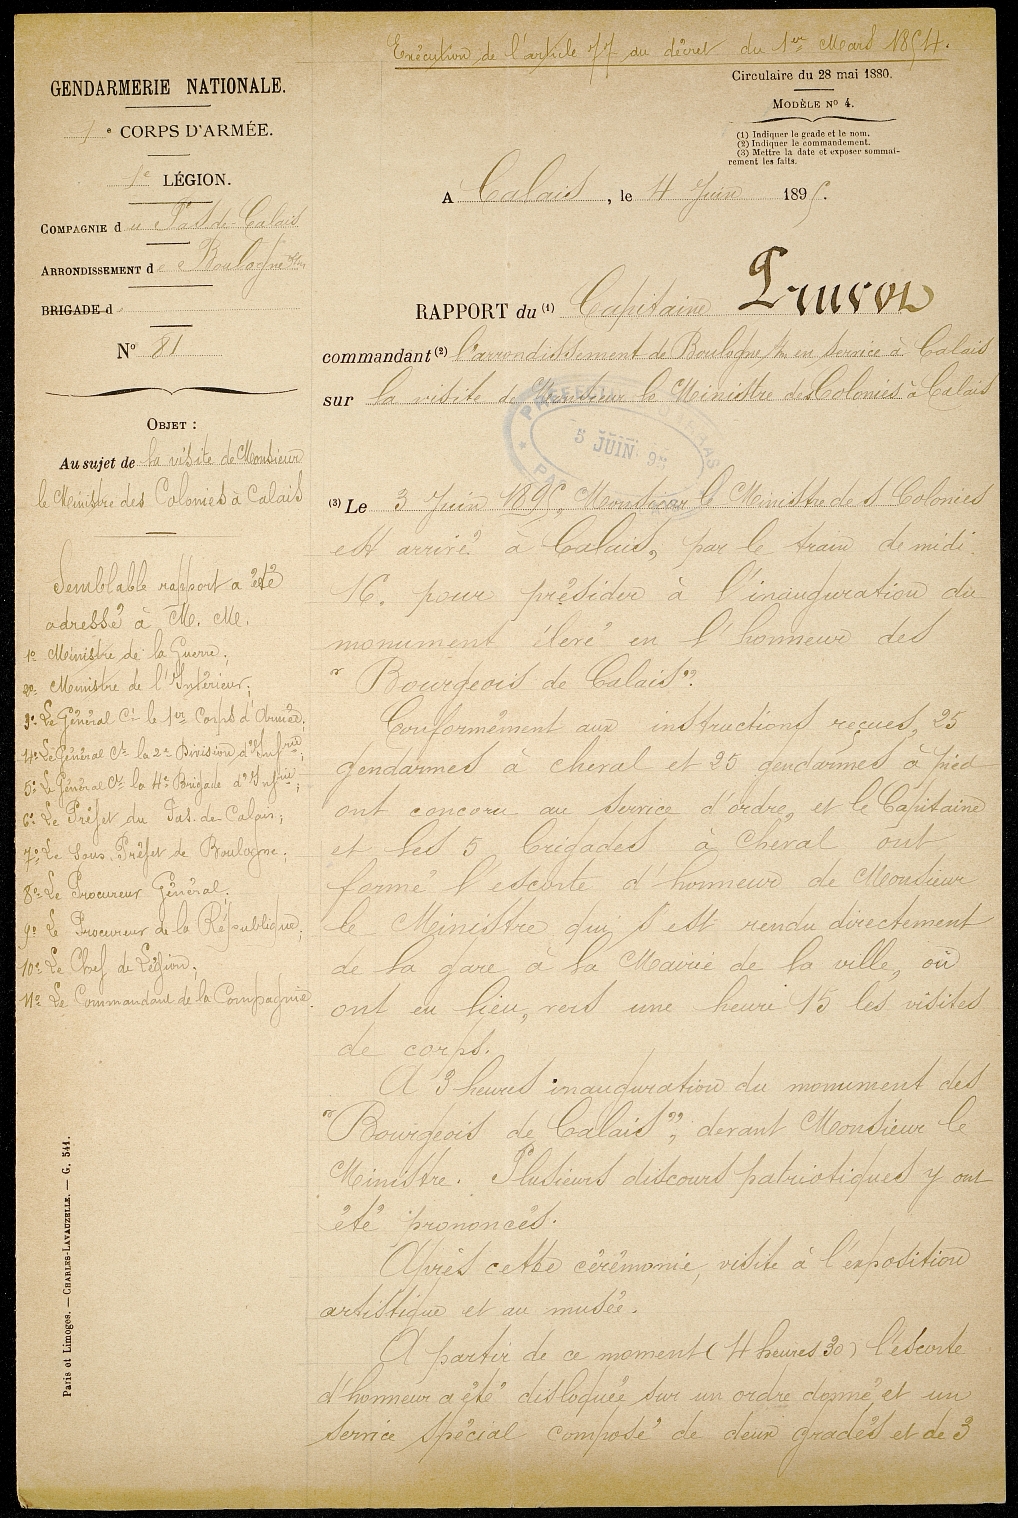 Exécution de l'article 77 du décret du 1er Mars 1854.
GENDARMERIE NATIONALE.
1e CORPS D'ARMÉE.
1e LÉGION.
COMPAGNIE du Pas-de-Calais
ARRONDISSEMENT de Boulogne s/m
BRIGADE d
No 81
OBJET :
Au sujet de la visite de Monsieur
le Ministre des Colonies à Calais
Semblable rapport a été
adressé à M. M.
1o Ministre de la Guerre;
2o Ministre de l'Intérieur;
3o Le Général Ct le 1er Corps d'Armée;
4o Le Général Ct la 2e Division d'Infrie;
5o Le Général Ct la 4e Brigade d'Infrie;
6o Le Préfet du Pas-de-Calais;
7o Le Sous-Préfet de Boulogne;
8o Le Procureur Général;
9o Le Procureur de la République;
10o Le Chef de Légion;
11o Le Commandant de la Compagnie.
Paris et Limoges. — CHARLES-LAVAUZELLE. — G. 541.
Circulaire du 28 mai 1880.
MODÈLE No 4.
(1) Indiquer le grade et le nom.
(2) Indiquer le commandement.
(3) Mettre la date et exposer sommai-
rement les faits.
A Calais, le 4 Juin 1895.
RAPPORT du (1) Capitaine
commandant (2) l'arrondissement de Boulogne s/m en service à Calais
sur la visite de Monsieur le Ministre des Colonies à Calais
5 JUIN 95
(3) Le 3 Juin 1895, Monsieur le Ministre des Colonies
est arrivé à Calais, par le train de midi
16. pour présider à l'inauguration du
monument élevé en l'honneur des
"Bourgeois de Calais".
Conformément aux instructions reçues, 25
gendarmes à cheval et 20 gendarmes à pied
ont concouru au service d'ordre, et le Capitaine
et les 5 brigades à cheval ont
formé l'escorte d'honneur de Monsieur
le Ministre qui s'est rendu directement
de la gare à la Mairie de la ville, où
ont eu lieu, vers une heure 15 les visites
de corps.
A 3 heures inauguration du monument des
"Bourgeois de Calais", devant Monsieur le
Ministre. Plusieurs discours patriotiques y ont
été prononcés.
Après cette cérémonie, visite à l'exposition
artistique et au musée.
A partir de ce moment (4 heures 30) l'escorte
d'honneur a été disloquée sur un ordre donné, et un
service spécial composé de deux gradés et de 3